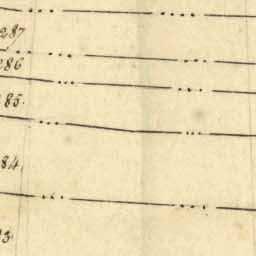 287
286
285
284